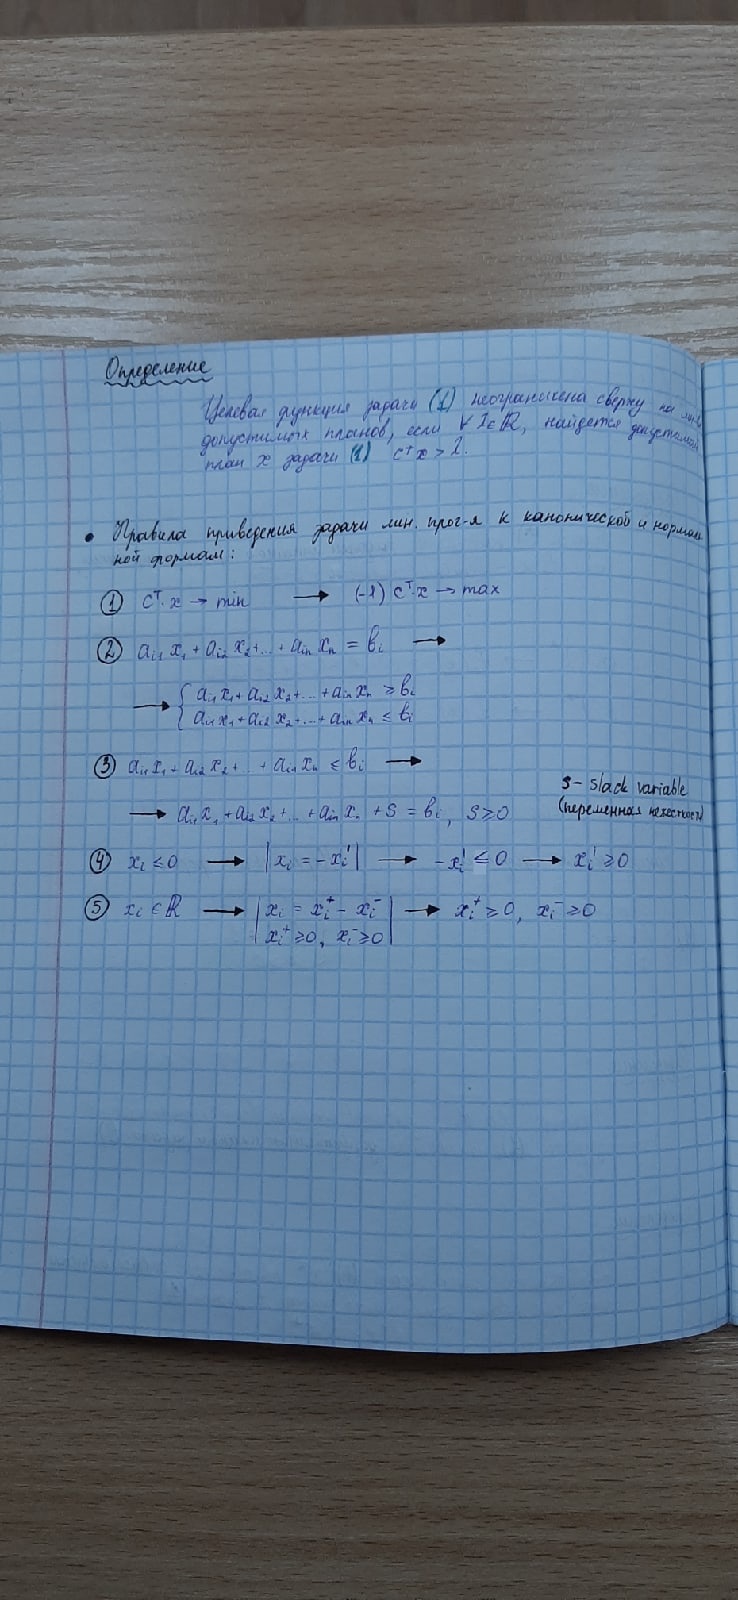 Определение
Целевая функция задачи (1) неограничена сверху на
допустимых планов, если ∀ λ∈ℝ, найдется допустимый
план x задачи (1) cᵀx > λ.
• Правила приведения задачи лин. прог-я к канонической и нормаль
ной формам:
① cᵀ·x → min → (-1) cᵀ·x → max
② aᵢ₁x₁ + aᵢ₂x₂ + ... + aᵢₙxₙ = bᵢ →
→ { aᵢ₁x₁ + aᵢ₂x₂ + ... + aᵢₙxₙ ≥ bᵢ
aᵢ₁x₁ + aᵢ₂x₂ + ... + aᵢₙxₙ ≤ bᵢ
③ aᵢ₁x₁ + aᵢ₂x₂ + ... + aᵢₙxₙ ≤ bᵢ →
→ aᵢ₁x₁ + aᵢ₂x₂ + ... + aᵢₙxₙ + S = bᵢ, S ≥ 0
S - slack variable
(переменная нежесткости)
④ xᵢ ≤ 0 → | xᵢ = -xᵢ' | → -xᵢ' ≤ 0 → xᵢ' ≥ 0
⑤ xᵢ ∈ ℝ → | xᵢ = xᵢ⁺ - xᵢ⁻ | → xᵢ⁺ ≥ 0, xᵢ⁻ ≥ 0
xᵢ⁺ ≥ 0, xᵢ⁻ ≥ 0